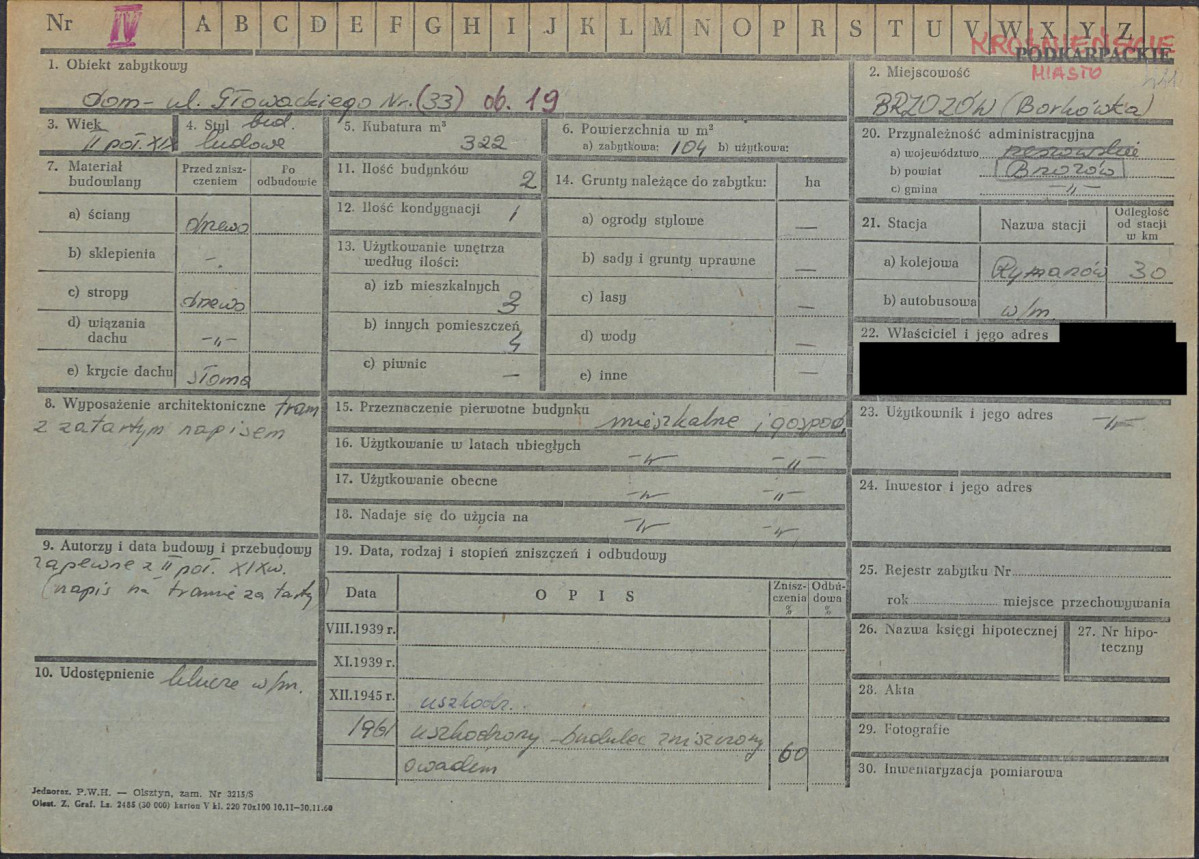 Nr IV A B C D E F G H I J K L M N O P R S T U V W X Y Z
KROŚNIEŃSKIE
PODKARPACKIE
MIASTO
1. Obiekt zabytkowy
dom - ul. Głowackiego Nr. (33) ob. 19
2. Miejscowość
BRZOZÓW (Borkówka)
3. Wiek
II poł. XIX
4. Styl bud.
ludowe
5. Kubatura m³
322
6. Powierzchnia w m²
a) zabytkowa: 104 b) użytkowa:
7. Materiał budowlany
Przed znisz-
czeniem
Po
odbudowie
a) ściany drewo
b) sklepienia -.
c) stropy drewo
d) wiązania
dachu -"-
e) krycie dachu słoma
8. Wyposażenie architektoniczne tram
z zatartym napisem
9. Autorzy i data budowy i przebudowy
zapewne z II poł. XIX w.
(napis na tramie zatarty)
10. Udostępnienie klucze w/m.
11. Ilość budynków 2
12. Ilość kondygnacji 1
13. Użytkowanie wnętrza
według ilości:
a) izb mieszkalnych 3
b) innych pomieszczeń 4
c) piwnic —
14. Grunty należące do zabytku: ha
a) ogrody stylowe —
b) sady i grunty uprawne —
c) lasy —
d) wody —
e) inne —
15. Przeznaczenie pierwotne budynku mieszkalne i gospod.
16. Użytkowanie w latach ubiegłych -"- -"-
17. Użytkowanie obecne -"- -"-
18. Nadaje się do użycia na -"- -"-
19. Data, rodzaj i stopień zniszczeń i odbudowy
Data OPIS Znisz-
czenia
% Odbu-
dowa
%
VIII.1939 r.
XI.1939 r.
XII.1945 r. uszkodz.
1961 uszkodzony - budulec zniszczony
owadem 60
20. Przynależność administracyjna
a) województwo rzeszowskie
b) powiat Brzozów
c) gmina -"-
21. Stacja Nazwa stacji Odległość
od stacji
w km
a) kolejowa Rymanów 30
b) autobusowa w/m.
22. Właściciel i jego adres
23. Użytkownik i jego adres -"-
24. Inwestor i jego adres
25. Rejestr zabytku Nr
rok miejsce przechowywania
26. Nazwa księgi hipotecznej
27. Nr hipo-
teczny
28. Akta
29. Fotografie
30. Inwentaryzacja pomiarowa
Jednoraz. P.W.H. — Olsztyn, zam. Nr 3215/S
Olszt. Z. Graf. Lz. 2485 (30 000) karton V kl. 220 70x100 10.11—30.11.60